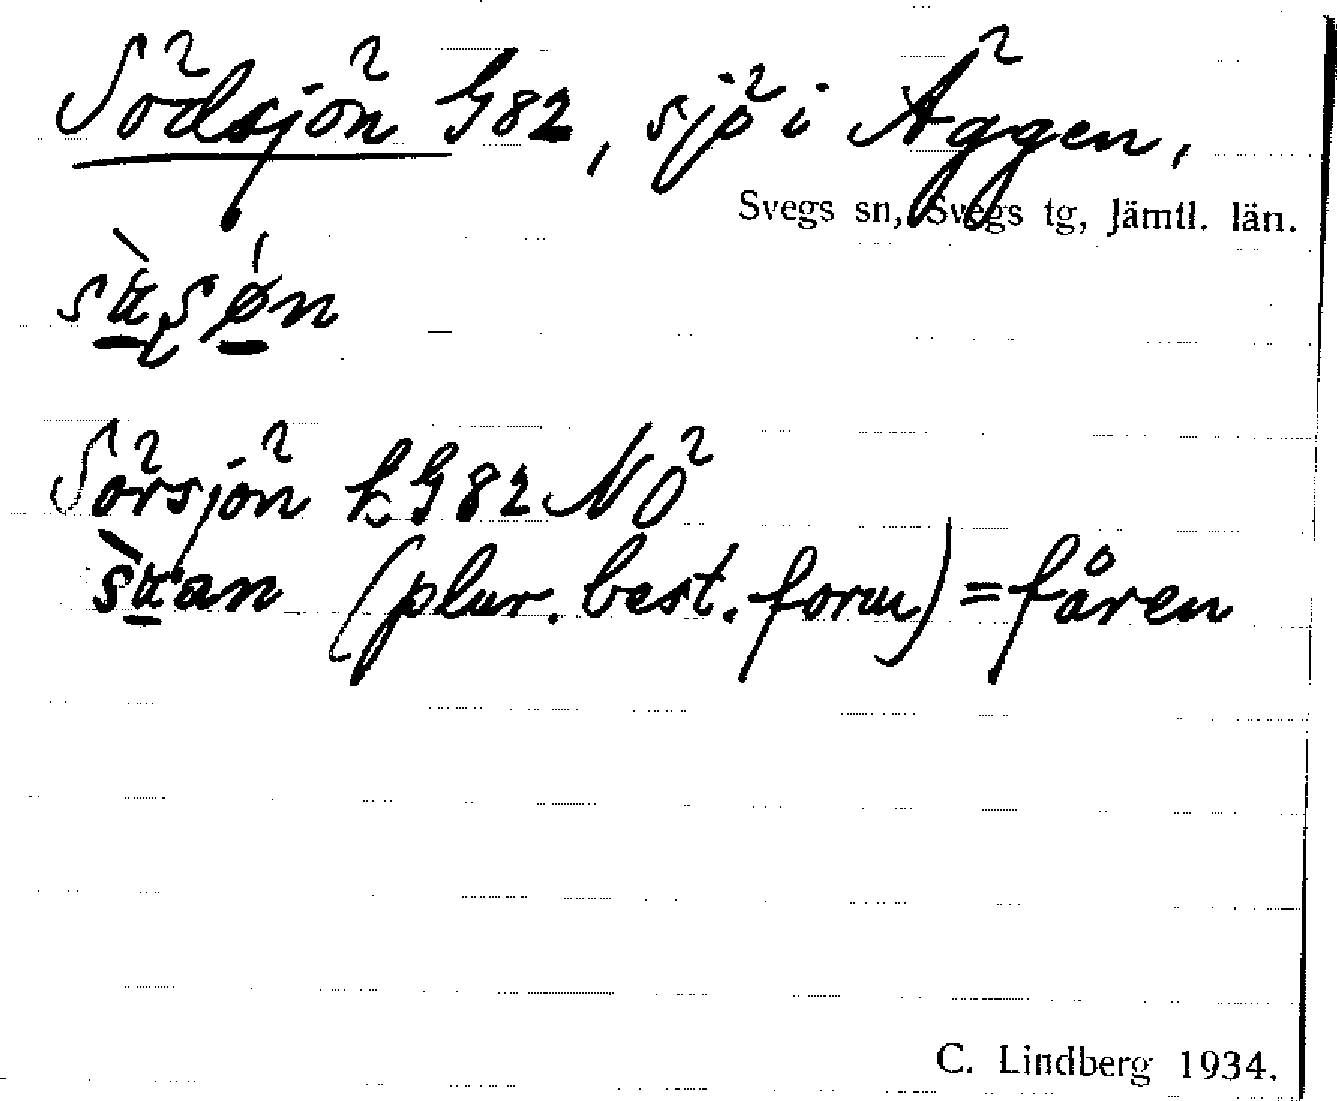 Södsjön G82, sjö i Äggen,
Svegs sn, Svegs tg, Jämtl. län.
Sörsjön kG82 NÖ
(plur. best. form) = fåren
C. Lindberg 1934.